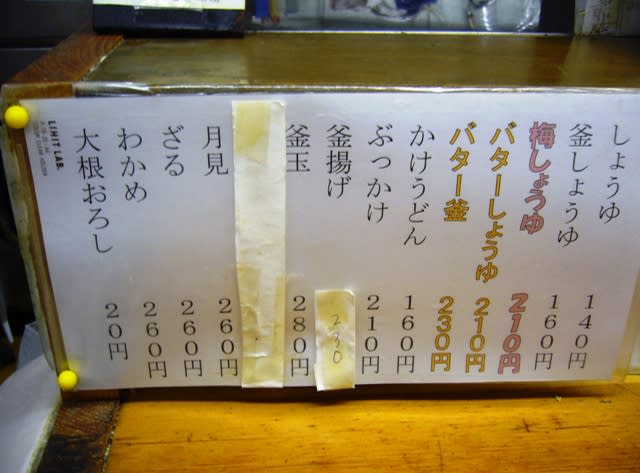 しょうゆ 140円
釜しょうゆ 160円
梅しょうゆ 210円
バターしょうゆ 210円
バター釜 230円
かけうどん 160円
ぶっかけ 210円
釜揚げ 230
釜玉 280円
月見 260円
ざる 260円
わかめ 260円
大根おろし 20円
LIHIT LAB.